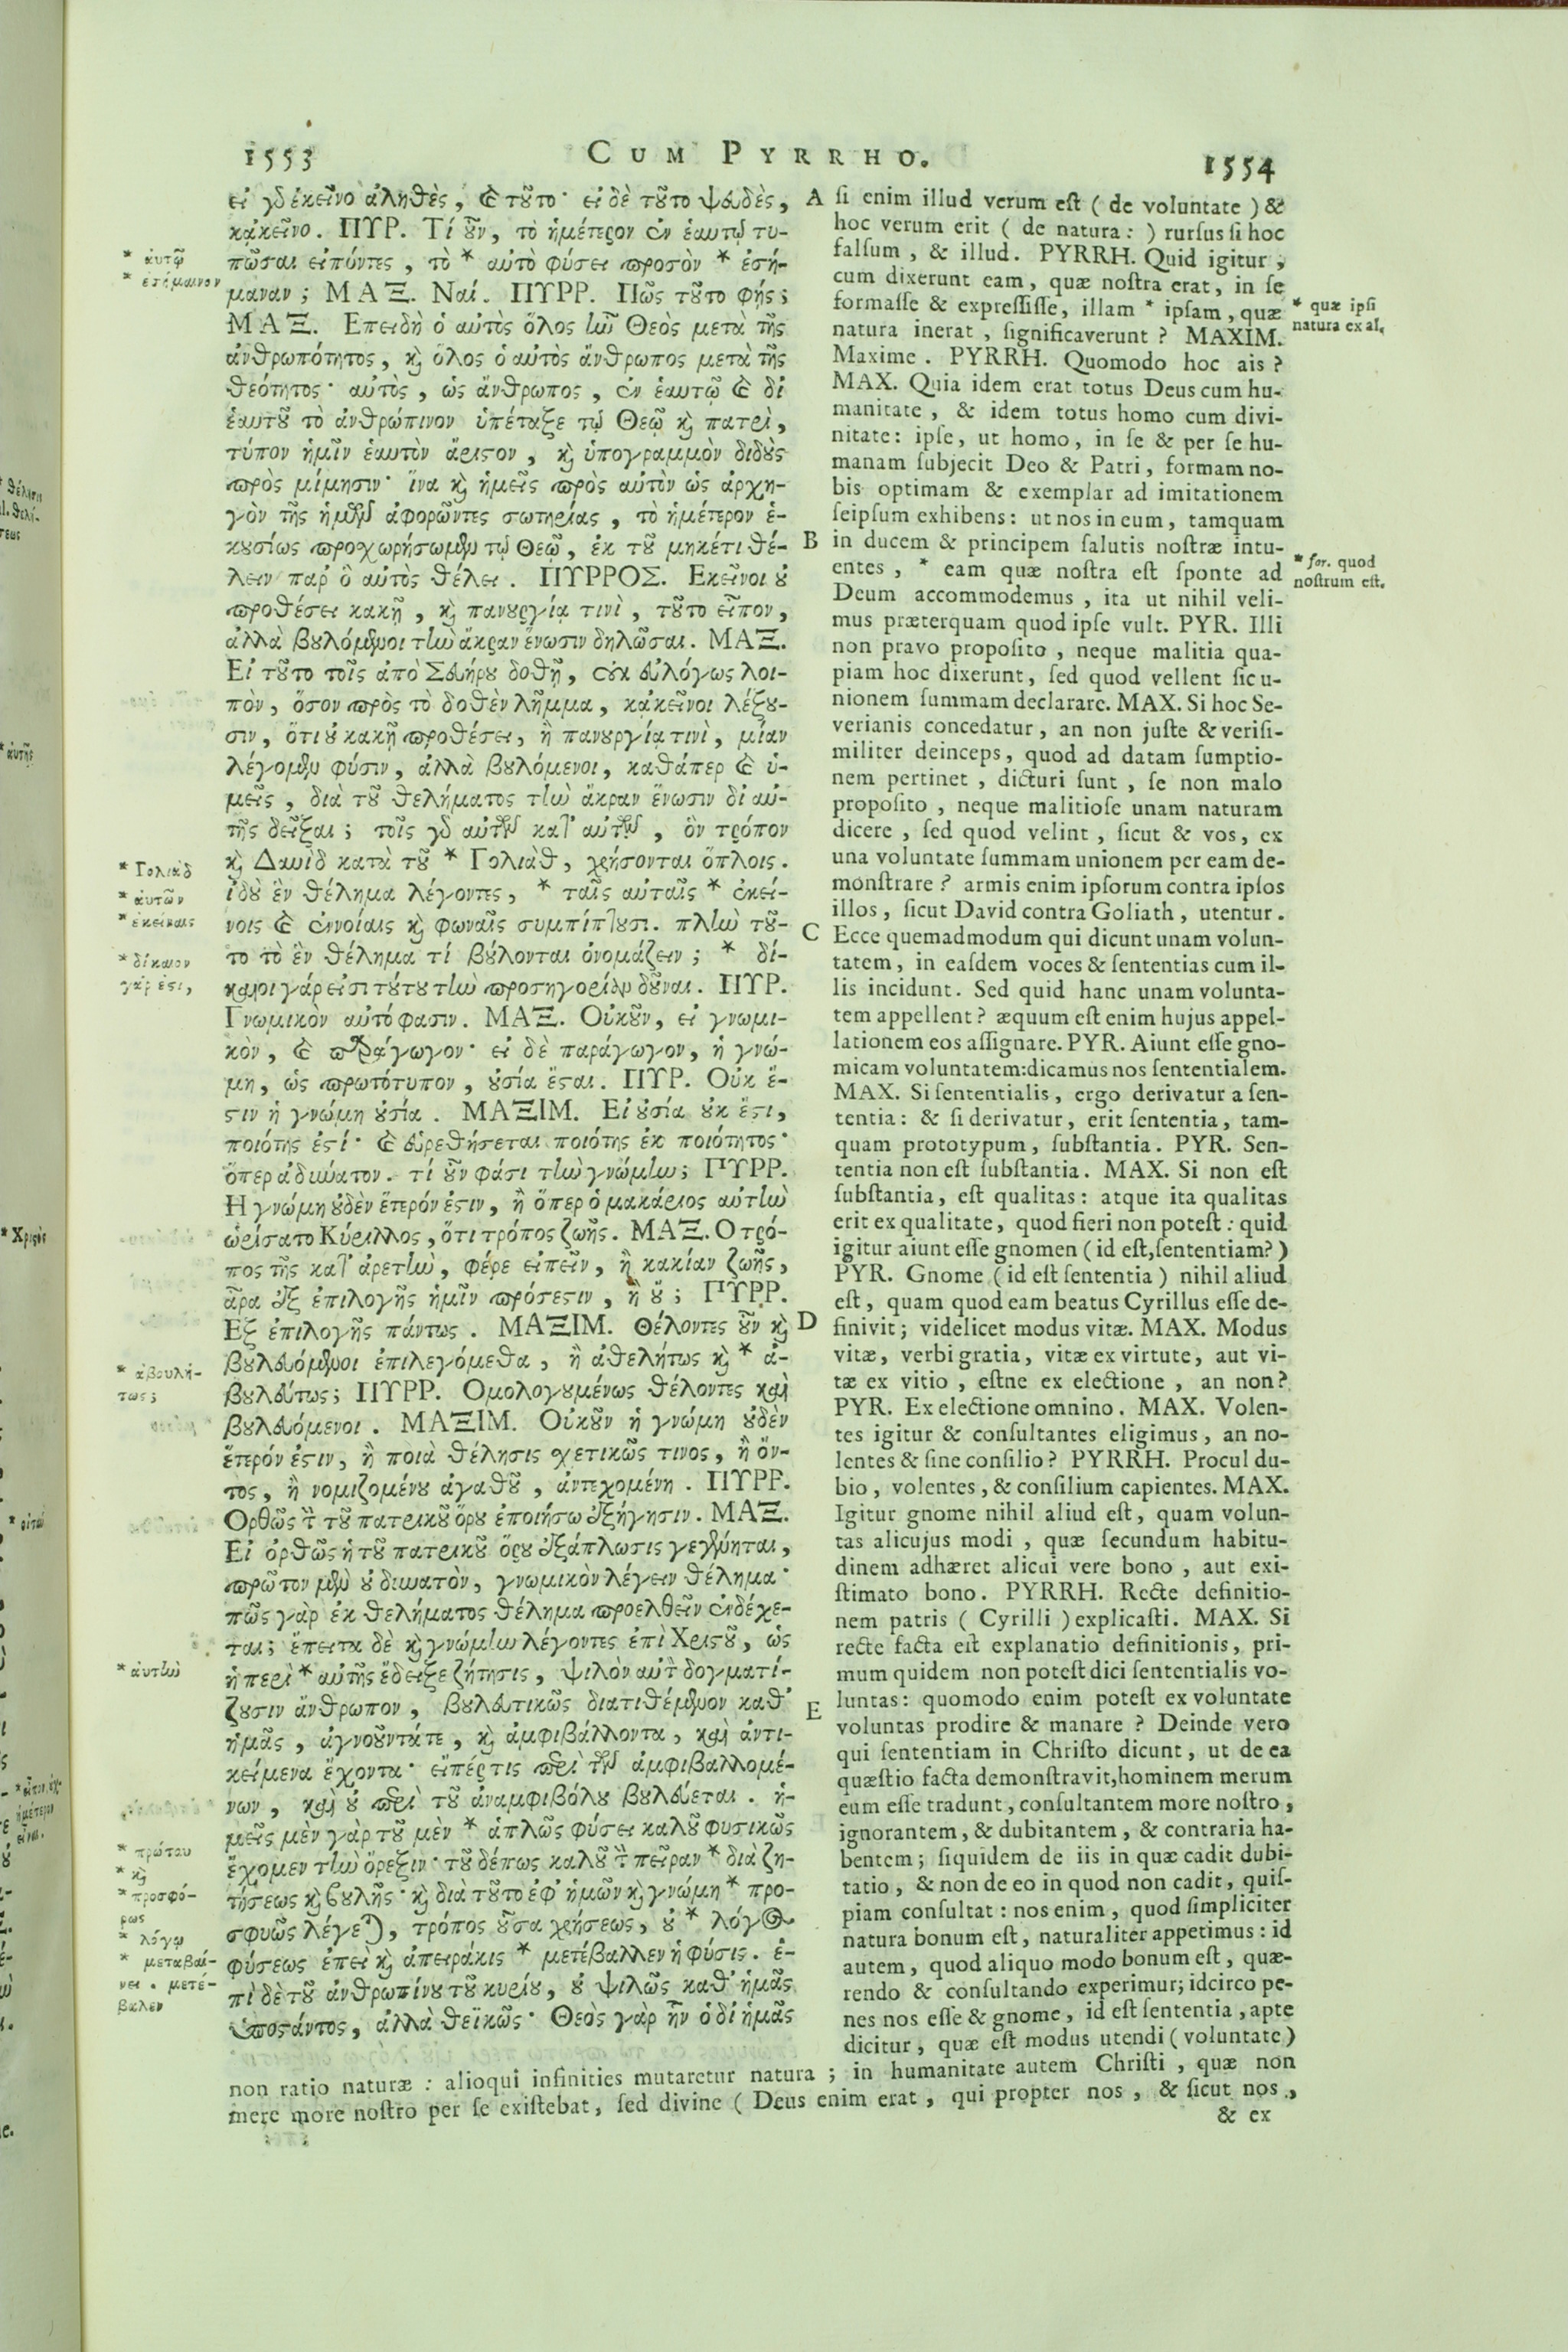 1553
CUM PYRRHO.
1554
εἰ γὸ ἐκεῖνο ἀληθὲς, & τȣ͂το· εἰ δὲ τȣ͂το ψευδὲς,
κἀκεῖνο. ΠΥΡ. Τί ȣ͂ν, τὸ ἡμέτερον ἐν ἑαυτῷ τυ-
πῶσαι εἰπόντες, τὸ * αὐτὸ φύσει προσὸν * ἐσή-
μαναν; ΜΑΞ. Ναί. ΠΥΡΡ. Πῶς τȣ͂το φῄς;
ΜΑΞ. Επειδὴ ὁ αὐτὸς ὅλος ἦν Θεὸς μετὰ τῆς
ἀνθρωπότητος, ϗ ὅλος ὁ αὐτὸς ἄνθρωπος μετὰ τῆς
θεότητος· αὐτὸς, ὡς ἄνθρωπος, ἐν ἑαυτῷ & δι
ἑαυτȣ͂ τὸ ἀνθρώπινον ὑπέταξε τῷ Θεῷ ϗ πατρὶ,
τύπον ἡμῖν ἑαυτὸν ἄριϛον, ϗ ὑπογραμμὸν διδȣ̀ς
πρὸς μίμησιν· ἵνα ϗ ἡμεῖς πρὸς αὐτὸν ὡς ἀρχη-
γὸν τῆς ἡμῶν ἀφορῶντες σωτηρίας, τὸ ἡμέτερον ἑ-
κȣσίως προχωρήσωμεν τῷ Θεῷ, ἐκ τȣ͂ μηκέτι θέ-
λειν παρ ὃ αὐτὸς θέλει. ΠΥΡΡΟΣ. Εκεῖνοι ȣ
προθέσει κακῇ, ϗ πανȣργίᾳ τινὶ, τȣ͂το εἶπον,
ἀλλὰ βȣλόμενοι τὴν ἄκραν ἕνωσιν δηλῶσαι. ΜΑΞ.
Εἰ τȣ͂το τοῖς ἀπὸ Σευήρȣ δοθῇ, ȣκ εὐλόγως λοι-
πὸν, ὅσον πρὸς τὸ δοθὲν λῆμμα, κἀκεῖνοι λέξȣ-
σιν, ὅτι ȣ κακῇ προθέσει, ἢ πανȣργίᾳ τινὶ, μίαν
λέγομεν φύσιν, ἀλλὰ βȣλόμενοι, καθάπερ & ὑ-
μεῖς, διὰ τȣ͂ θελήματος τὴν ἄκραν ἕνωσιν δι αὐ-
τῆς δεῖξαι; τοῖς γὸ αὐτῶν κατ' αὐτῶν, ὃν τρόπον
ϗ Δαυὶδ κατὰ τȣ͂ * Γολιὰθ, χρήσονται ὅπλοις.
ἰδȣ̀ ἓν θέλημα λέγοντες, * ταῖς αὐταῖς * ἐκεί-
νοις & ἐννοίαις ϗ φωναῖς συμπίπτȣσι. πλὴν τȣ͂-
το τὸ ἓν θέλημα τί βȣ́λονται ὀνομάζειν; * δί-
καιοι γάρ εἰσι τȣ́τȣ τὴν προσηγορίαν δȣ͂ναι. ΠΥΡ.
Γνωμικὸν αὐτό φασιν. ΜΑΞ. Οὐκȣ͂ν, εἰ γνωμι-
κὸν, & παράγωγον· εἰ δὲ παράγωγον, ἡ γνώ-
μη, ὡς πρωτότυπον, ȣσία ἔϛαι. ΠΥΡ. Οὐκ ἔ-
ϛιν ἡ γνώμη ȣσία. ΜΑΞΙΜ. Εἰ ȣσία ȣκ ἔϛι,
ποιότης ἐϛί· & εὑρεθήσεται ποιότης ἐκ ποιότητος·
ὅπερ ἀδύνατον. τί ȣ͂ν φάσι τὴν γνώμην; ΠΥΡΡ.
Η γνώμη ȣδὲν ἕτερόν ἐϛιν, ἢ ὅπερ ὁ μακάριος αὐτὴν
ὡρίσατο Κύριλλος, ὅτι τρόπος ζωῆς. ΜΑΞ. Ο τρό-
πος τῆς κατ' ἀρετὴν, φέρε εἰπεῖν, ἢ κακίαν ζωῆς,
ἆρα ἐξ ἐπιλογῆς ἡμῖν πρόσεϛιν, ἢ ȣ; ΠΥΡΡ.
Εξ ἐπιλογῆς πάντως. ΜΑΞΙΜ. Θέλοντες ȣ͂ν ϗ
βȣλευόμενοι ἐπιλεγόμεθα, ἢ ἀθελήτως ϗ * ἀ-
βȣλεύτως; ΠΥΡΡ. Ομολογȣμένως θέλοντες καὶ
βȣλευόμενοι. ΜΑΞΙΜ. Οὐκȣ͂ν ἡ γνώμη ȣδὲν
ἕτερόν ἐϛιν, ἢ ποιὰ θέλησις σχετικῶς τινος, ἢ ὄν-
τος, ἢ νομιζομένȣ ἀγαθȣ͂, ἀντεχομένη. ΠΥΡΡ.
Ορθῶς τὴν τȣ͂ πατρικȣ͂ ὅρȣ ἐποιήσω ἐξήγησιν. ΜΑΞ.
Εἰ ὀρθῶς ἡ τȣ͂ πατρικȣ͂ ὅρȣ ἐξάπλωσις γεγένηται,
πρῶτον μὲν ȣ δυνατὸν, γνωμικὸν λέγειν θέλημα·
πῶς γὰρ ἐκ θελήματος θέλημα προελθεῖν ἐνδέχε-
ται; ἔπειτα δὲ ϗ γνώμην λέγοντες ἐπὶ Χριϛȣ͂, ὡς
ἡ περὶ * αὐτῆς ἔδειξε ζήτησις, ψιλὸν αὐτὸν δογματί-
ζȣσιν ἄνθρωπον, βȣλευτικῶς διατιθέμενον καθ'
ἡμᾶς, ἀγνοȣ͂ντάτε, ϗ ἀμφιβάλλοντα, καὶ ἀντι-
κείμενα ἔχοντα· εἰπέρ τις περὶ τῶν ἀμφιβαλλομέ-
νων, καὶ ȣ περὶ τȣ͂ ἀναμφιβόλȣ βȣλεύεται. ἡ-
μεῖς μὲν γὰρ τȣ͂ μὲν * ἁπλῶς φύσει καλȣ͂ φυσικῶς
ἔχομεν τὴν ὄρεξιν· τȣ͂ δέ πως καλȣ͂ τὴν πεῖραν * διὰ ζη-
τήσεως ϗ βȣλῆς· ϗ διὰ τȣ͂το ἐφ' ἡμῶν ϗ γνώμη * προ-
σφυῶς λέγεται, τρόπος ȣ͂σα χρήσεως, ȣ * λόγος
φύσεως ἐπεὶ ϗ ἀπειράκις * μετέβαλλεν ἡ φύσις. ἐ-
πὶ δὲ τȣ͂ ἀνθρωπίνȣ τȣ͂ κυρίȣ, ȣ ψιλῶς καθ' ἡμᾶς
ὑποϛάντος, ἀλλὰ θεϊκῶς· Θεὸς γὰρ ἦν ὁ δι ἡμᾶς
* ἀυτῷ
* ἐσήμαινον
* Γολιὰδ
* ἀυτῶν
* ἐκείναις
* δίκαιον
γάρ ἐϛι,
* ἀβουλή-
τως;
* ἀυτὴν
* πρώτου
* ϗ
* προσφό-
ρως
* λόγῳ
* μεταβαί-
νει. μετέ-
βαλεν
A
B
C
D
E
si enim illud verum est (de voluntate) &
hoc verum erit (de natura:) rursus si hoc
falsum, & illud. PYRRH. Quid igitur,
cum dixerunt eam, quæ nostra erat, in se
formasse & expressisse, illam * ipsam, quæ
natura inerat, significaverunt? MAXIM.
Maxime. PYRRH. Quomodo hoc ais?
MAX. Quia idem erat totus Deus cum hu-
manitate, & idem totus homo cum divi-
nitate: ipse, ut homo, in se & per se hu-
manam subjecit Deo & Patri, formam no-
bis optimam & exemplar ad imitationem
seipsum exhibens: ut nos in eum, tamquam
in ducem & principem salutis nostræ intu-
entes, * eam quæ nostra est sponte ad
Deum accommodemus, ita ut nihil veli-
mus præterquam quod ipse vult. PYR. Illi
non pravo proposito, neque malitia qua-
piam hoc dixerunt, sed quod vellent sic u-
nionem summam declarare. MAX. Si hoc Se-
verianis concedatur, an non juste & verisi-
militer deinceps, quod ad datam sumptio-
nem pertinet, dicturi sunt, se non malo
proposito, neque malitiose unam naturam
dicere, sed quod velint, sicut & vos, ex
una voluntate summam unionem per eam de-
monstrare? armis enim ipsorum contra ipsos
illos, sicut David contra Goliath, utentur.
Ecce quemadmodum qui dicunt unam volun-
tatem, in easdem voces & sententias cum il-
lis incidunt. Sed quid hanc unam volunta-
tem appellent? æquum est enim hujus appel-
lationem eos assignare. PYR. Aiunt esse gno-
micam voluntatem: dicamus nos sententialem.
MAX. Si sententialis, ergo derivatur a sen-
tentia: & si derivatur, erit sententia, tam-
quam prototypum, substantia. PYR. Sen-
tentia non est substantia. MAX. Si non est
substantia, est qualitas: atque ita qualitas
erit ex qualitate, quod fieri non potest: quid
igitur aiunt esse gnomen (id est, sententiam?)
PYR. Gnome (id est sententia) nihil aliud
est, quam quod eam beatus Cyrillus esse de-
finivit; videlicet modus vitæ. MAX. Modus
vitæ, verbi gratia, vitæ ex virtute, aut vi-
tæ ex vitio, estne ex electione, an non?
PYR. Ex electione omnino. MAX. Volen-
tes igitur & consultantes eligimus, an no-
lentes & sine consilio? PYRRH. Procul du-
bio, volentes, & consilium capientes. MAX.
Igitur gnome nihil aliud est, quam volun-
tas alicujus modi, quæ secundum habitu-
dinem adhæret alicui vere bono, aut exi-
stimato bono. PYRRH. Recte definitio-
nem patris (Cyrilli) explicasti. MAX. Si
recte facta est explanatio definitionis, pri-
mum quidem non potest dici sententialis vo-
luntas: quomodo enim potest ex voluntate
voluntas prodire & manare? Deinde vero
qui sententiam in Christo dicunt, ut de ea
quæstio facta demonstravit, hominem merum
eum esse tradunt, consultantem more nostro,
ignorantem, & dubitantem, & contraria ha-
bentem; siquidem de iis in quæ cadit dubi-
tatio, & non de eo in quod non cadit, quis-
piam consultat: nos enim, quod simpliciter
natura bonum est, naturaliter appetimus: id
autem, quod aliquo modo bonum est, quæ-
rendo & consultando experimur; idcirco pe-
nes nos esse & gnome, id est sententia, apte
dicitur, quæ est modus utendi (voluntate)
* quæ ipsi
natura ex al.
* for. quod
nostrum est.
non ratio naturæ: alioqui infinities mutaretur natura; in humanitate autem Christi, quæ non
mere more nostro per se existebat, sed divine (Deus enim erat, qui propter nos, & sicut nos,
& ex